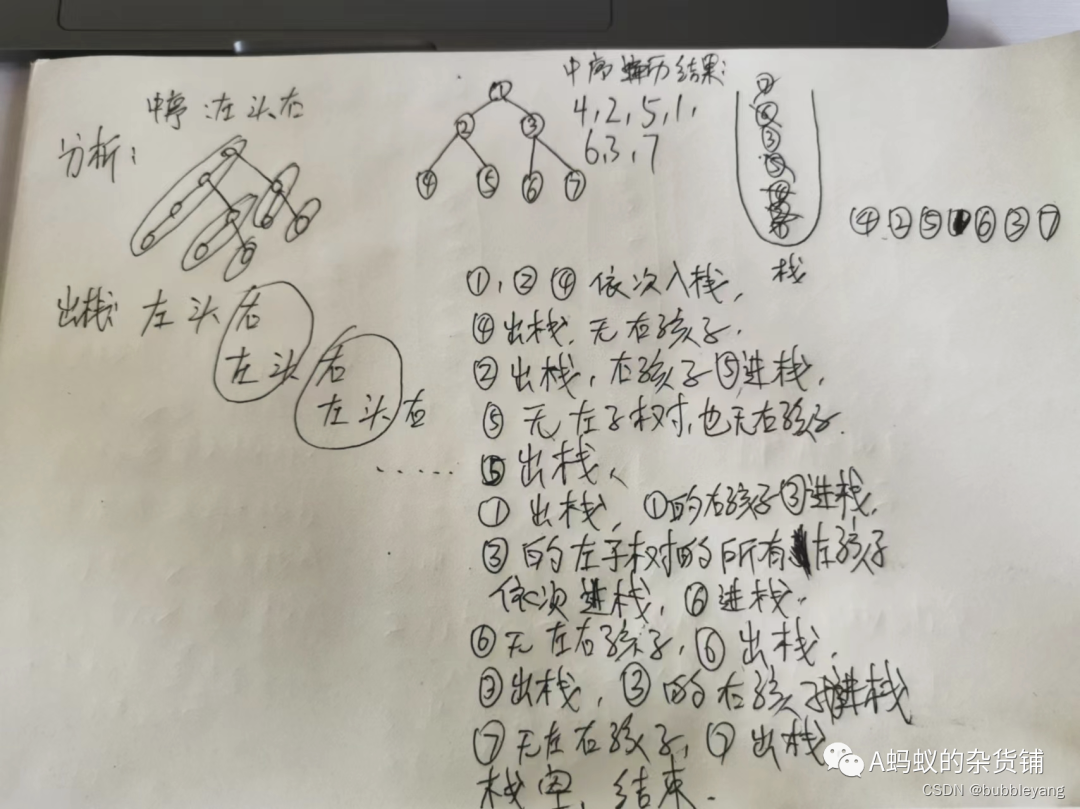 中序:左头右
分析:
出栈 左头右
左头右
左头右
......
①
② ③
④ ⑤ ⑥ ⑦
中序遍历结果:
4,2,5,1,
6,3,7
③
栈
④②⑤①⑥③⑦
①,② ④ 依次入栈,
④出栈,无右孩子.
②出栈,右孩子⑤进栈,
⑤无左子树,也无右孩子.
⑤出栈、
①出栈,①的右孩子③进栈,
③的左子树的所有左孩子
依次进栈,⑥进栈.
⑥无左右孩子,⑥出栈.
③出栈,③的右孩子进栈
⑦无左右孩子,⑦出栈
栈空,结束.
A蚂蚁的杂货铺
CSDN @bubbleyang_